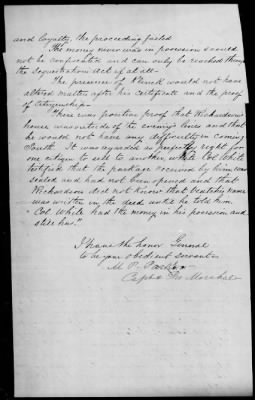 and loyalty, the proceeding failed
The money never was in possession & could
not be confiscated and can only be reached through
the Sequestration Act if at all—
The presence of would not have
altered matters after his certificate and the proof
of Citizenship—
There was positive proof that Richardson's
house was outside of the enemy's lines and that
he would not have any difficulty in coming
South. It was regarded as perfectly right for
one citizen to sell to another, while Col White
testified that the package received by him was
sealed and had not been opened and that
Richardson did not know that name
was written in the deed until he told him.
"Col White had the money in his possession and
still has."
I have the honor General
to be your obedient servant
M P
Capt & Pro Marshal